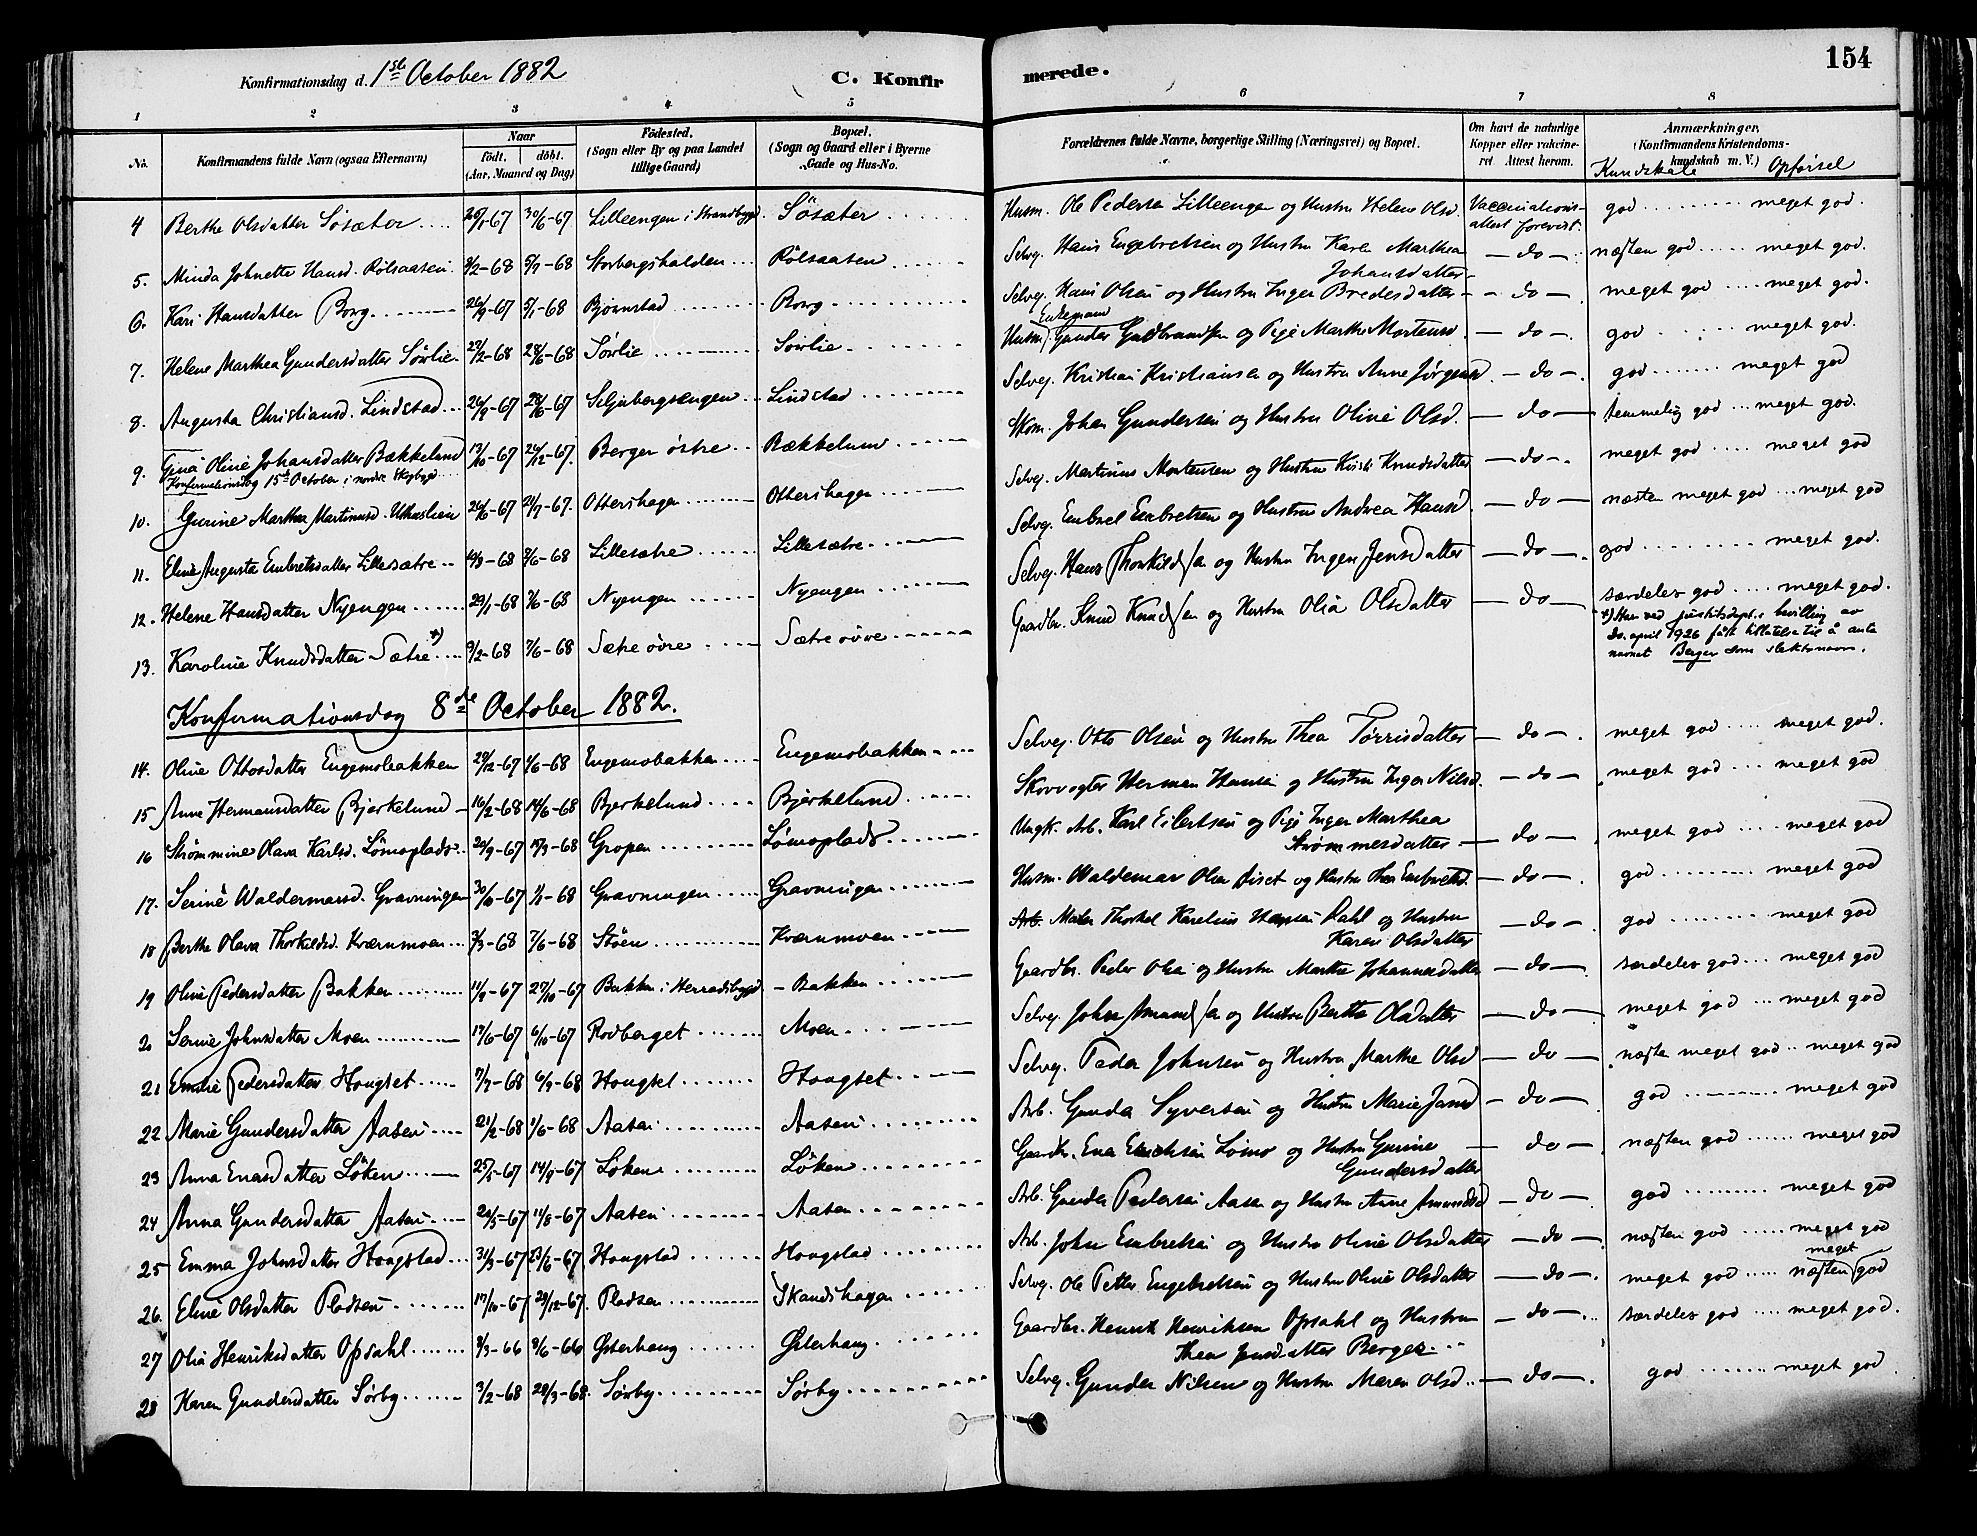 154
Konfirmationsdag d. 1ste October 1882 C. Konfirmerede.
1 2 3 4 5 6 7 8
No. Konfirmandens fulde Navn (ogsaa Efternavn) Naar födt. döbt. (Aar, Maaned og Dag) Födested. (Sogn eller By og paa Landet tillige Gaard) Bopæl. (Sogn og Gaard eller i Byerne Gade og Hus-No. Forældrenes fulde Navne, borgerlige Stilling (Næringsvei) og Bopæl. Om havt de naturlige Kopper eller vakcineret. Attest herom. Anmærkninger. (Konfirmandens Kristendomskundskab m. V.) Kundskab Opførsel
4 Berthe Olsdatter Sösæter 30/6-67 Lilleengen i Strandbygd. Sösæter Husm. Ole Pedersen Lilleengen og Hustru Helene Olsd. Vaccinationsattest forevist. god meget god.
5. Minda Johnette Hansd. Rölsaasen 5/7-68 Storbergshalden Rölsaasen Selvej. Hans Engebretsen og Hustru Karen Marthea Johansdatter do næsten god meget god.
6. Kari Hansdatter Borg 26/9-67 5/1-68 Bjørnstad Borg Selvej. Hans Olsen og Hustru Inger Bredesdatter do meget god meget god.
7. Helene Marthea Gundersdatter Sörlie 23/2-68 28/6-68 Sörlie Sörlie Husm. Enkemand Gunder Gudbrandsen og Pige Marthe Mortensd do god meget god.
8. Augusta Christiansd. Lindstad 26/9-67 Seljubergsengen Lindstad Selvej. Kristian Kristiansen og Hustru Anne Jørgensd. do god meget god
9. Gina Oline Johansdatter Bækkelund 13/10-67 26/12-67. Berger östre Bækkelund Skom. Johan Gundersen og Hustru Oline Olsd. do temmelig god meget god.
Konfirmationsdag 15de October i nordre Skogbygd
10. Gurine Marthea Martinusd. Uthuslien 26/6-67 21/7-67. Ottershagen Ottershagen Selvej. Martinus Mortensen og Hustru Kirsti Knudsdatter do meget god meget god
11. Eline Augusta Embretsdatter Lillesætre 7/6-68 Lillesætre Lillesætre Selvej. Embret Embretsen og Hustru Andrea Hansd. do næsten meget god meget god
12. Helene Hansdatter Nyengen 29/1-68 7/6-68 Nyengen Nyengen Selvej. Hans Thorkildsen og Hustru Inger Jensdatter do god meget god.
13. Karoline Knudsdatter Sætre *) 9/2-68 7/6-68 Sætre övre Sætre övre Gaardbr. Knud Knudsen og Hustru Olia Olsdatter do særdeles god meget god.
*) Har ved justitsdept.s bevilling av do. april 1926 fått tillatelse til å anta navnet Berger som slektsnavn.
Konfirmationsdag 8de October 1882.
14. Oline Ottosdatter Engemobakken 29/12-67 1/6-68 Engemobakken Engemobakken Selvej. Otto Olsen og Hustru Thea Tørrisdatter do meget god meget god.
15 Anne Hermansdatter Bjerkelund 16/2-68 14/6-68 Bjerkelund Bjerkelund Skovvogter Herman Hansen og Hustru Inger Nilsd. do meget god meget god
16 Strømmine Olava Karlsd. Lömoplads 20/9-67 Gropen Lömoplads Ungk. Arb. Karl Eilertsen og Pige Inger Marthea Strømmesdatter do meget god meget god
17. Serine Waldemarsd. Gravningen 30/6-67 Gravningen Gravningen Husm. Waldemar Olsen og Hustru Thea Embretsd. do god meget god
18 Berthe Olava Thorkildsd. Kværnmoen 3/3-68 7/6-68 Stöen Kværnmoen Maler Thorkel Karelius Hansen Dahl og Hustru Karen Olsdatter do god meget god
19 Oline Pedersdatter Bakken 11/9-67 27/10-67 Bakken i Herradsbygd Bakken Gaardbr. Peder Olsen og Hustru Marthe Johannesdatter do særdeles god meget god
20 Serine Johnsdatter Moen 17/6-67 6/10-67 Rodberget Moen Selvej. John Amundsen og Hustru Berthe Olsdatter do meget god meget god
21 Emilie Pedersdatter Hougset 7/7-68 6/9-68 Hougset Hougset Selvej. Peder Johnsen og Hustru Marthe Olsd do næsten meget god meget god
22 Marie Gundersdatter Aasen 21/2-68 1/6-68 Aasen Aasen Arb. Gunder Syversen og Hustru Marie Jansd do god meget god
23 Anna Enersdatter Löken 25/5-67 14/9-67 Löken Löken Gaardbr. Ener Ericksen Lömo og Hustru Gurine Gundersdatter do næsten god meget god
24 Anna Gundersdatter Aasen 20/5-67 11/8-67 Aasen Aasen Arb. Gunder Pedersen Aasen og Hustru Anne Amundsd do god meget god
25 Emma Johnsdatter Hougstad 31/3-67 23/6-67 Hougstad Hougstad Arb. John Embretsen og Hustru Oline Olsdatter do næsten god meget god
26. Eline Olsdatter Pladsen 17/10-67 29/12-67. Pladsen Skandshagen Selvej. Ole Petter Engebretsen og Hustru Oline Olsdatter do meget god meget næsten god
27 Olia Henriksdatter Opsahl 3/3-66 Østerhaug Østerhaug Gaardbr. Henrik Henriksen Opsahl og Hustru Thea Jensdatter Berger do særdeles god meget god.
28 Karen Gundersdatter Sørby 3/2-68 29/3-68. Sørby Sørby Selvej. Gunder Nilsen og Hustru Maren Olsd do god meget god